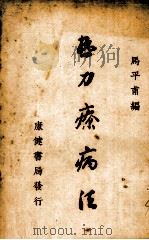 平甫編
力療病法
康健書局發行